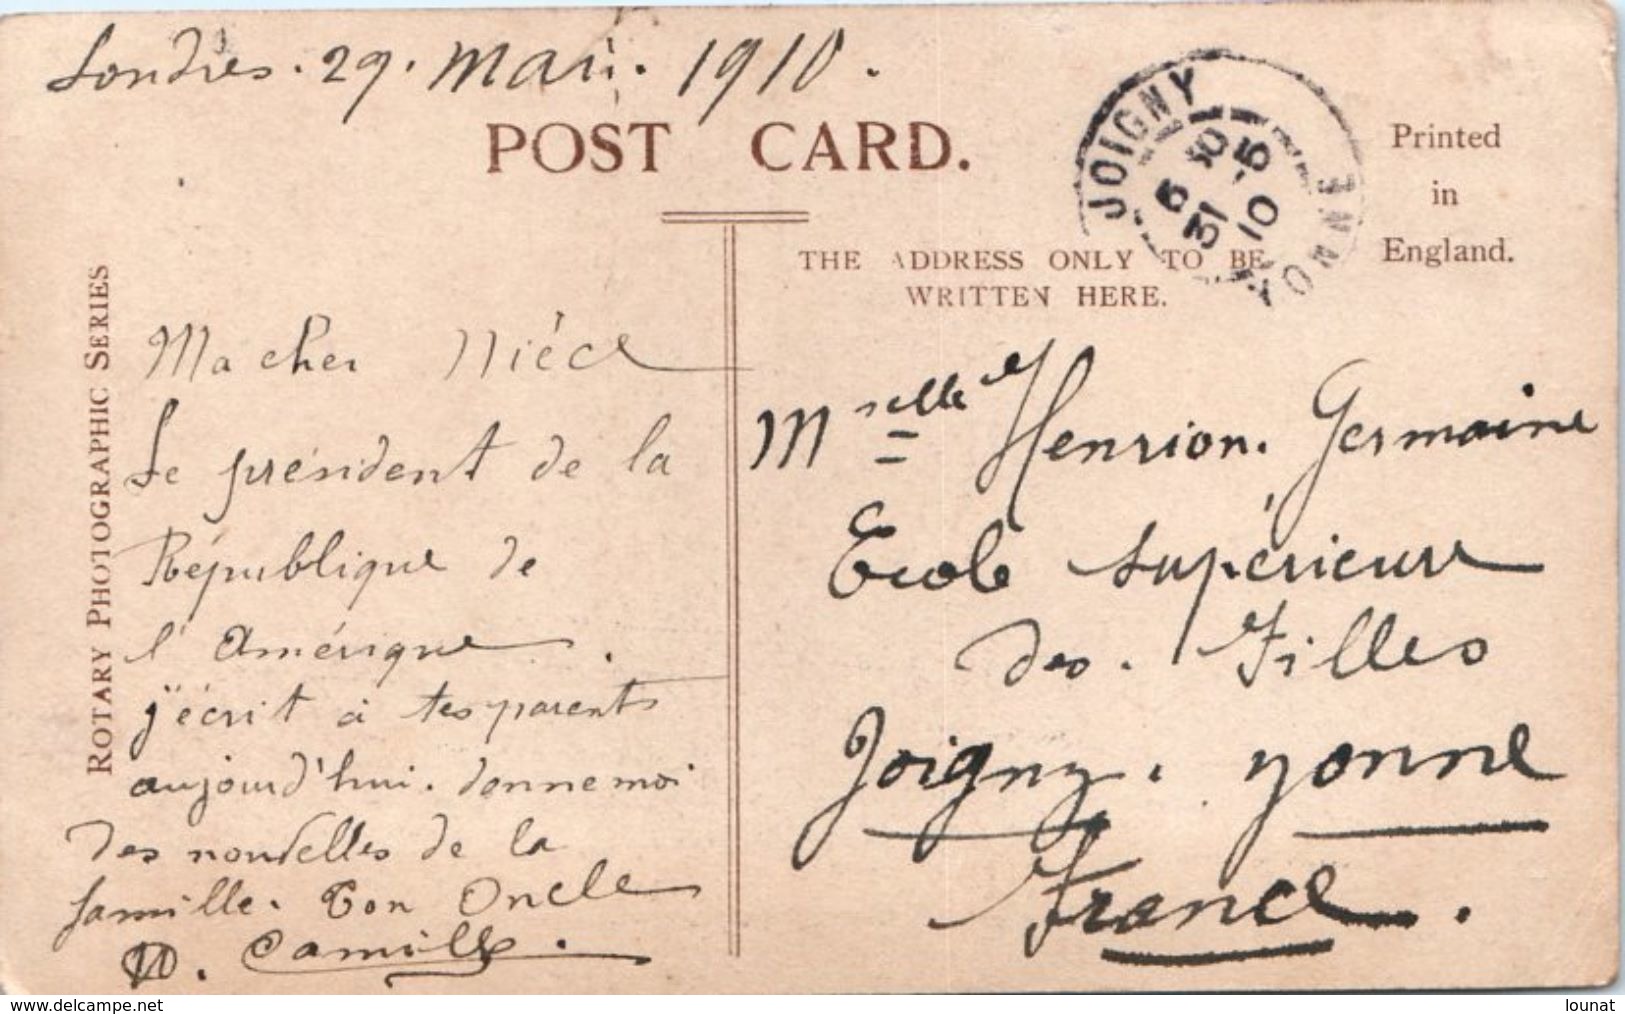 Londres. 29. Mai. 1910.
POST CARD.
JOIGNY
YONNE
31 10
Printed
in
England.
THE ADDRESS ONLY TO BE
WRITTEN HERE.
ROTARY PHOTOGRAPHIC SERIES
Ma cher Niéce
Le président de la
République de
l'Amérique.
j'écrit à tes parents
aujourd'hui. donne moi
des nouvelles de la
famille. Ton Oncle
Camille.
Mselle Henrion. Germaine
Ecole supérieure
des. Filles
Joigny. yonne
France.
www.delcampe.net
lounat